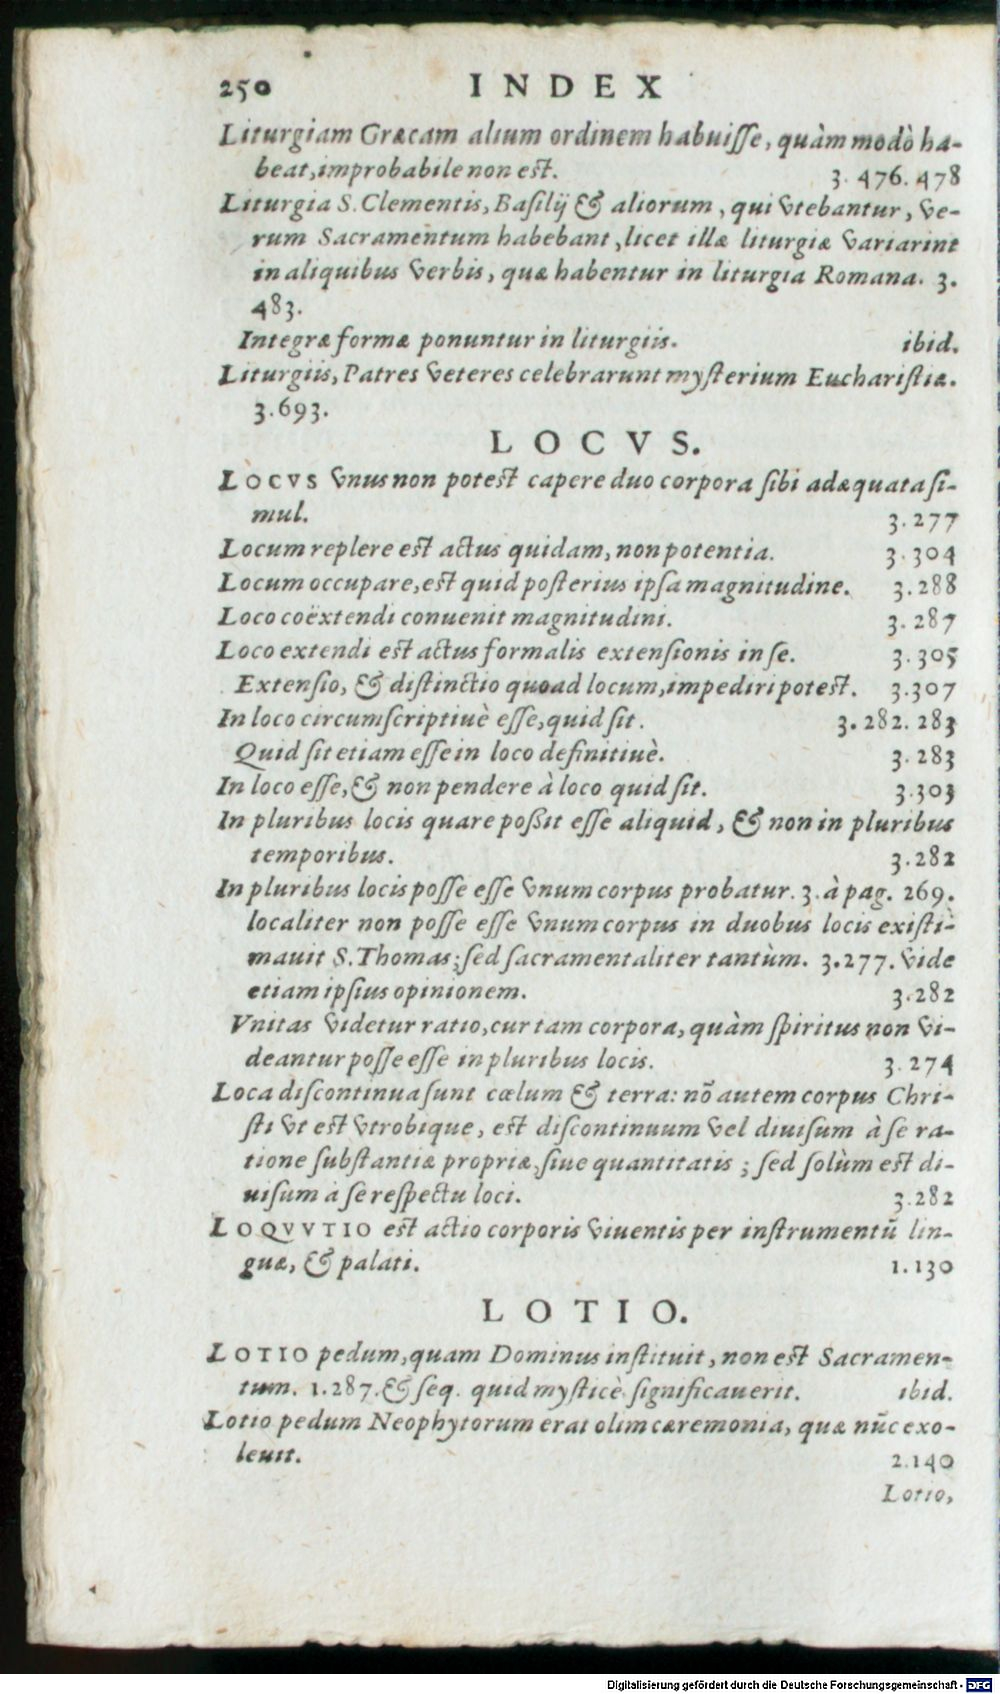 250 INDEX
Liturgiam Græcam alium ordinem habuiſſe, quàm modò ha-
beat, improbabile non eſt. 3. 476. 478
Liturgia S. Clementis, Baſilij & aliorum, qui vtebantur, ve-
rum Sacramentum habebant, licet illæ liturgiæ variarint
in aliquibus verbis, quæ habentur in liturgia Romana. 3.
483.
Integræ formæ ponuntur in liturgiis. ibid.
Liturgiis, Patres veteres celebrarunt myſterium Euchariſtiæ.
3.693.
LOCVS.
LOCVS vnus non poteſt capere duo corpora ſibi adæquata ſi-
mul. 3.277
Locum replere eſt actus quidam, non potentia. 3.304
Locum occupare, eſt quid poſterius ipſa magnitudine. 3.288
Loco coëxtendi conuenit magnitudini. 3.287
Loco extendi eſt actus formalis extenſionis in ſe. 3.305
Extenſio, & diſtinctio quoad locum, impediri poteſt. 3.307
In loco circumſcriptiuè eſſe, quid ſit. 3.282.283
Quid ſit etiam eſſe in loco definitiuè. 3.283
In loco eſſe, & non pendere à loco quid ſit. 3.303
In pluribus locis quare poßit eſſe aliquid, & non in pluribus
temporibus. 3.282
In pluribus locis poſſe eſſe vnum corpus probatur. 3. à pag. 269.
localiter non poſſe eſſe vnum corpus in duobus locis exiſti-
mauit S. Thomas; ſed ſacramentaliter tantùm. 3.277. vide
etiam ipſius opinionem. 3.282
Vnitas videtur ratio, cur tam corpora, quàm ſpiritus non vi-
deantur poſſe eſſe in pluribus locis. 3.274
Loca diſcontinua ſunt cœlum & terra: nõ autem corpus Chri-
ſti vt eſt vtrobique, eſt diſcontinuum vel diuiſum à ſe ra-
tione ſubſtantiæ propriæ, ſiue quantitatis; ſed ſolùm eſt di-
uiſum à ſe reſpectu loci. 3.282
LOQVVTIO eſt actio corporis viuentis per inſtrumentũ lin-
guæ, & palati. 1.130
LOTIO.
LOTIO pedum, quam Dominus inſtituit, non eſt Sacramen-
tum. 1.287. & ſeq. quid myſticè ſignificauerit. ibid.
Lotio pedum Neophytorum erat olim cæremonia, quæ nũc exo-
leuit. 2.140
Lotio,
Digitalisierung gefördert durch die Deutsche Forschungsgemeinschaft - DFG